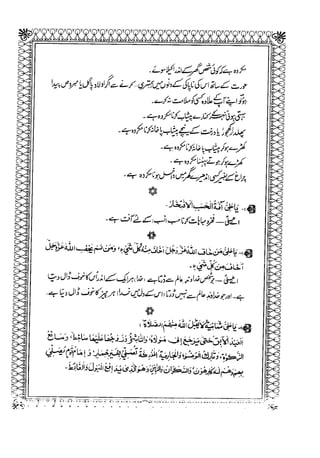 مکروہ ہے کہ کوئی شخص گھر کے اندر اکیلا سوئے۔
عورت کے ساتھ اس کی ناپاکی کے دنوں میں ہمبستری کرنے سے اگر اولاد پاگل یا مبروص پیدا
ہو تو اپنے آپ کے علاوہ کسی کو ملامت نہ کرے۔
بہتی ہوئی نہر کے کنارے پیشاب کرنا مکروہ ہے۔
پھلدار کھجور یا درخت کے نیچے پیشاب یا پاخانہ کرنا مکروہ ہے۔
کھڑے ہو کر پیشاب یا پاخانہ کرنا مکروہ ہے۔
کھڑے ہو کر جوتے پہننا مکروہ ہے۔
چراغ کے بغیر کسی اندھیرے گھر میں داخل ہونا مکروہ ہے۔
یا علی آفة الحسب الافتخار۔
اے علی — فخر و مباہات کرنا حسب و نسب کے لئے آفت ہے۔
یا علی من خاف الله عز وجل اخاف منه کل شیء، ومن لم یخف الله عز وجل
اخافه من کل شیء۔
اے علی — جو شخص خداوند عالم سے ڈرتا ہے خدا ہر ایک کے اندر اس کا خوف ڈال دیتا
ہے۔ اور جو خداوند عالم سے نہیں ڈرتا اس کے دل میں خدا ہر چیز کا خوف ڈال دیتا ہے۔
یا علی ثمانیة لا یقبل الله منهم الصلاة:
العبد الآبق حتی یرجع الی مولاه، والناشز وزوجها علیها ساخط، ومانع
الزکوة، وتارک الوضوء، والجاریة المدرکة تصلی بغیر خمار، وامام قوم یصلی
بهم وهم له کارهون، والسکران، والزبین وهو الذی یدافع البول والغائط۔